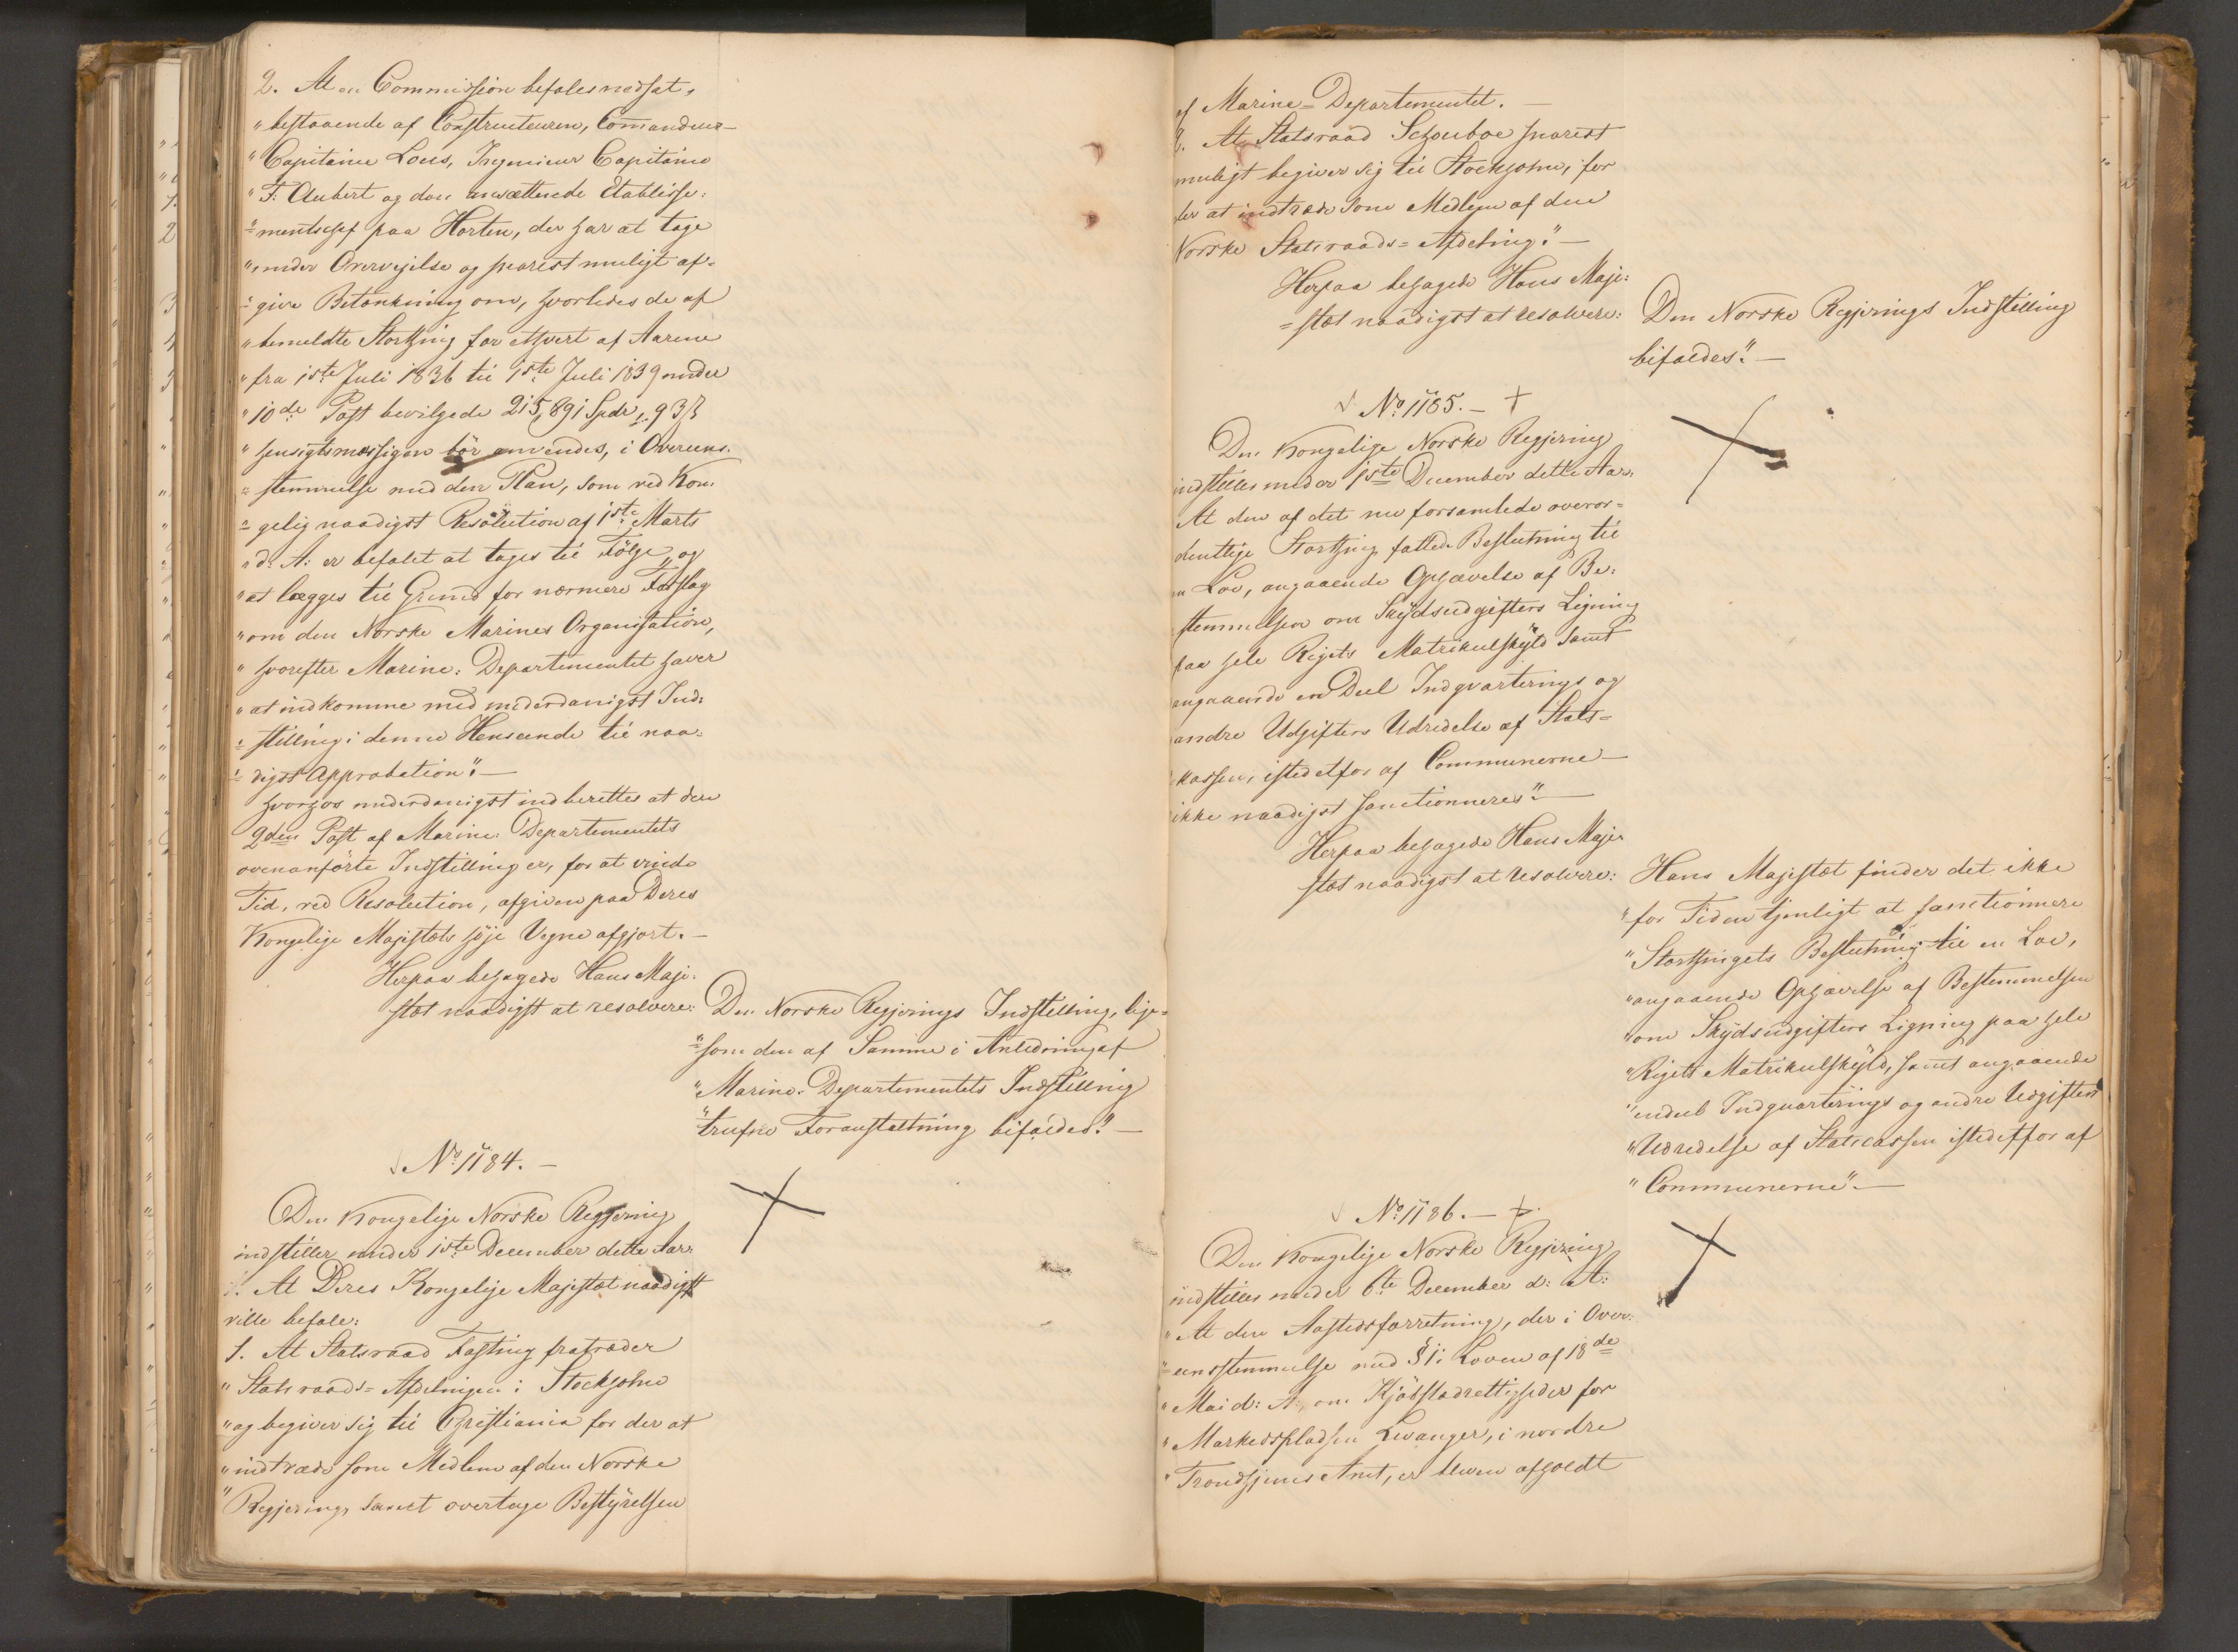 2. At en Commission befales nedsat,
"bestaaende af Constructeuren, Comandeur-
"Capitaine Lous, Ingenieur Capitaine
"F. Aubert og den ansættende Etablisse:
"=mentschef paa Horten, der har at tage
"under Overvejelse og snarest muligt af=
"=give Betænkning om, hvorledes de af
"bemeldte Storthing for ethvert af Aarene
"fra 1ste Juli 1836 til 1ste Juli 1839 under
"10de Post bevilgede 215,891 Spdr. 93 ß
"hensigtsmæssigen bör anvendes, i Overeens.
"=stemmelse med den Plan, som ved Kon:
"=gelig naadigst Resolution af 1ste Marts
"d: A: er befalet at tages til Fölge, og
"at lægges til Grund for nærmere Forslag
"om den Norske Marines Organisation,
"hvorefter Marine: Departementet haver
"at indkomme med underdanigst Ind:
"=stilling i denne Henseende til naa=
"=digst Approbation". —
hvorhos underdanigst indberettes at den
2den Post af Marine: Departementets
ovenanförte Indstilling er, for at vinde
Tid, ved Resolution, afgiven paa Deres
Kongelige Majestæts höje Vegne afgjort. —
Herpaa behagede Hans Maje:
stæt naadigst at resolvere:
Den Norske Regjerings Indstilling, lige=
"=som den af Samme i Anledning af
"Marine: Departementets Indstilling
"trufne Foranstaltning bifaldes". —
No 1184. —
Den Kongelige Norske Regjering
indstiller under 1ste December dette Aar:
At Deres Kongelige Majestæt naadigst
ville befale:
1. At Statsraad Fasting fratræder
"Statsraads= Afdelingen i Stockholm
"og begiver sig til Christiania for der at
"indtræde som Medlem af den Norske
"Regjering, samt overtage Bestyrelsen
af Marine= Departementet. —
2. At Statsraad Schouboe snarest
muligt begiver sig til Stockholm, for
der at indtræde som Medlem af den
Norske Statsraads= Afdeling". —
Herpaa behagede Hans Maje:
=stæt naadigst at resolvere:
Den Norske Regjerings Indstilling
bifaldes". —
No 1185. —
Den Kongelige Norske Regjering
indstiller under 1ste December dette Aar:
At den af det nu forsamlede overor=
dentlige Storthing fattede Beslutning til
en Lov, angaaende Ophævelse af Be:
stemmelsen om Skydsudgifters Ligning
paa hele Rigets Matrikulskyld samt
angaaende en Deel Indqvarterings og
andre Udgifters Udredelse af Stats=
kassen, istedetfor af Communerne —
ikke naadigst sanctionneres". —
Herpaa behagede Hans Maje:
stæt naadigst at resolvere:
Hans Majestæt finder det ikke
"for Tiden tjenligt at sanctionnere
"Storthingets Beslutning til en Lov,
"angaaende Ophævelse af Bestemmelsen
"om Skydsudgifters Ligning paa hele
"Rigets Matrikulskyld, samt angaaende
"endeel Indqvarterings og andre Udgifters
"Udredelse af Statscassen istedetfor af
"Communerne". —
No 1186. —
Den Kongelige Norske Regjering
indstiller under 6te December d: A:
"At den Aastedsforretning, der i Over:
"=eensstemmelse med § 1 i Loven af 18de
"Mai d: A:, om Kjöbstadrettigheder for
"Markedspladsen Levanger, i nordre
"Trondhjems Amt, er bleven afholdt